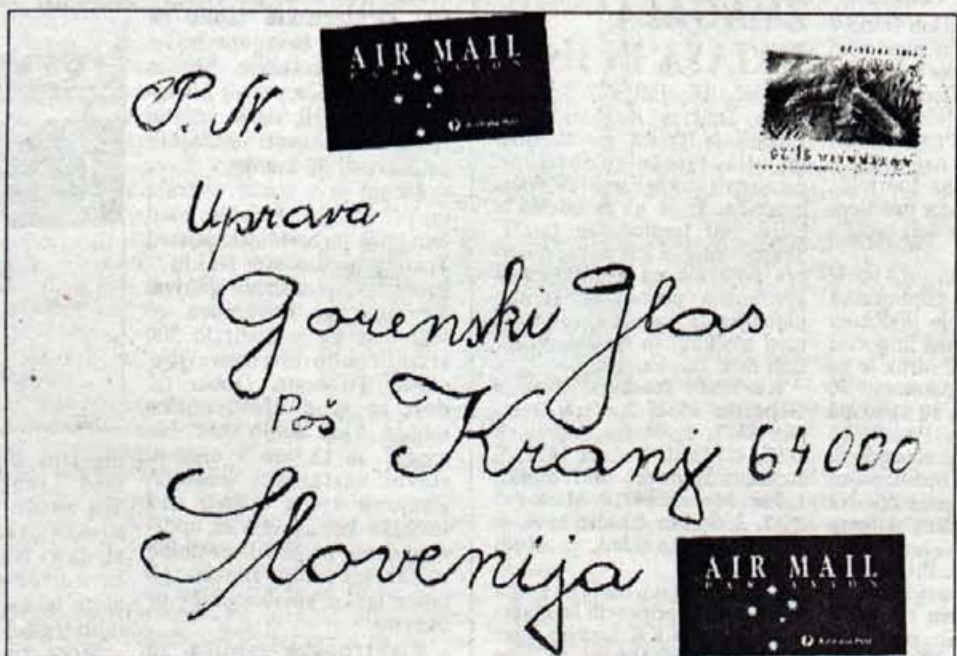 AIR MAIL
PAR AVION
P. N.
Uprava
Gorenski Glas
Poš
Kranj 64000
Slovenija
AUSTRALIA $1.20
AIR MAIL
PAR AVION